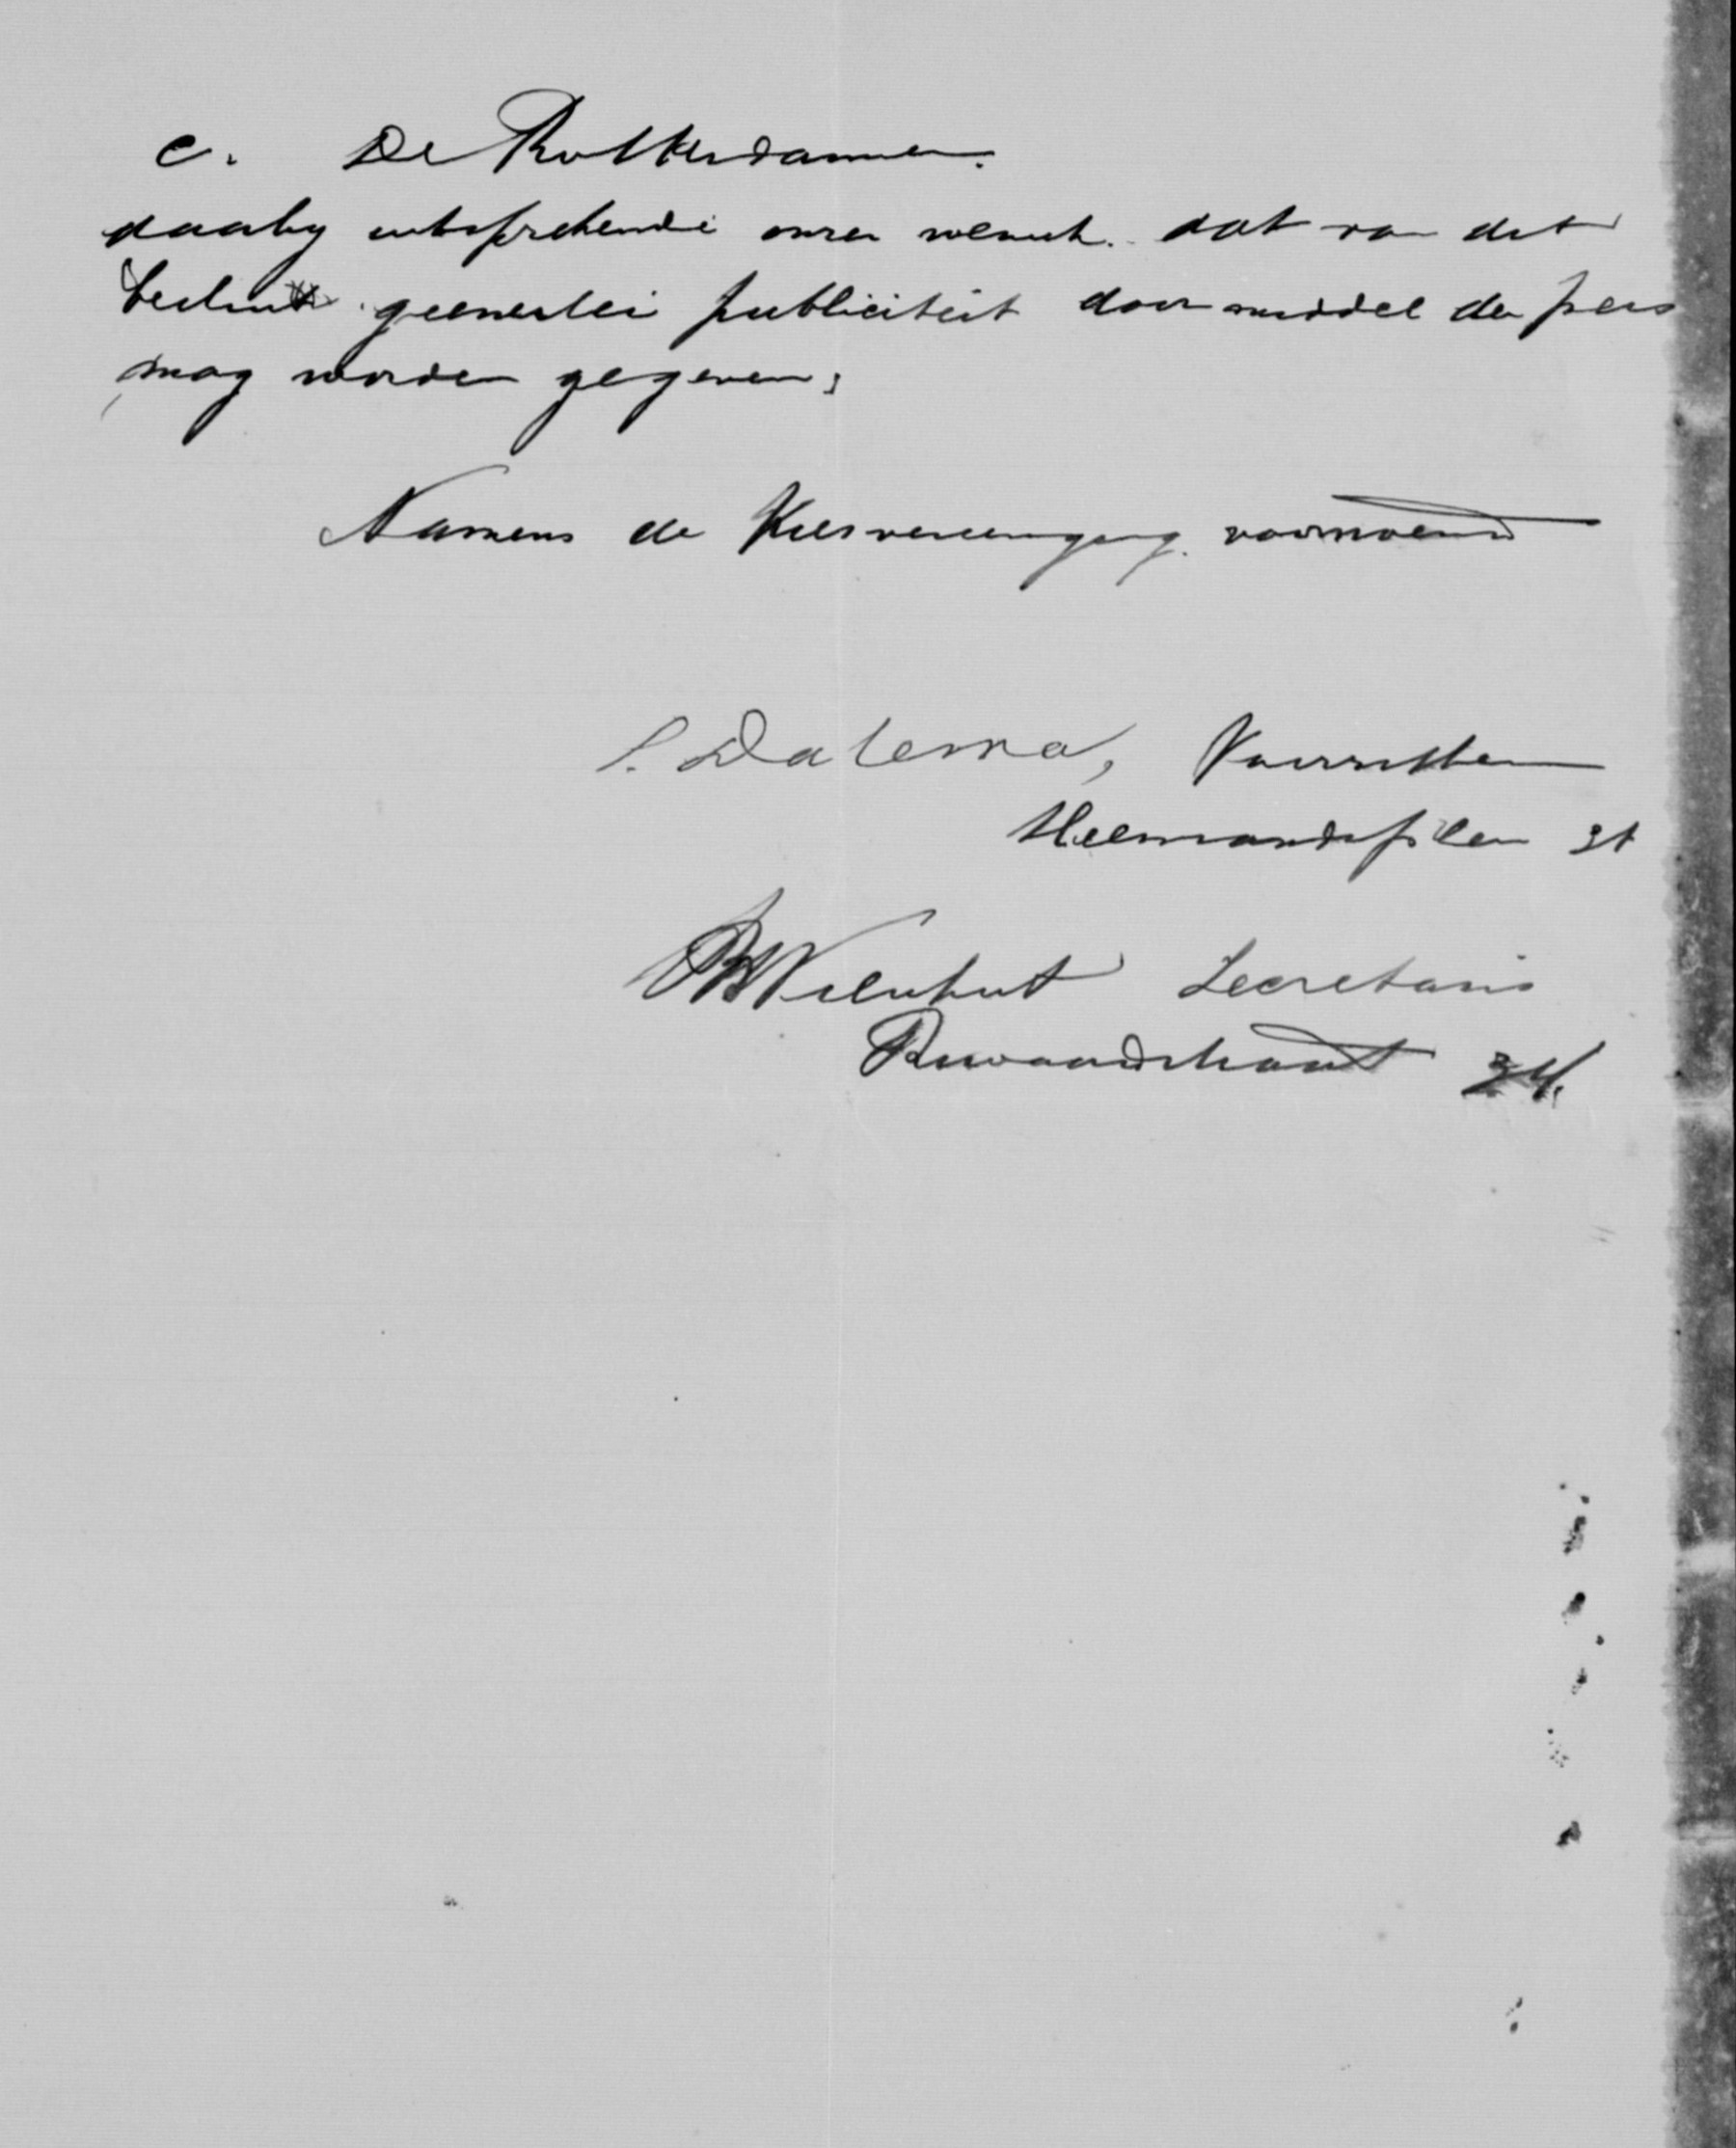 c. De Rotterdammer.
daarby uitsprekende onzen wensch. dat van dit
besluit geenerlei publiciteit door middel der pers
mag worden gegeven;
Namens de Kiesvereeniging. voornoemd
S. Datema, Voorzitter
Heemraadsplein 31
Nieuwhut Secretaris
Ruwaardstraat 34.